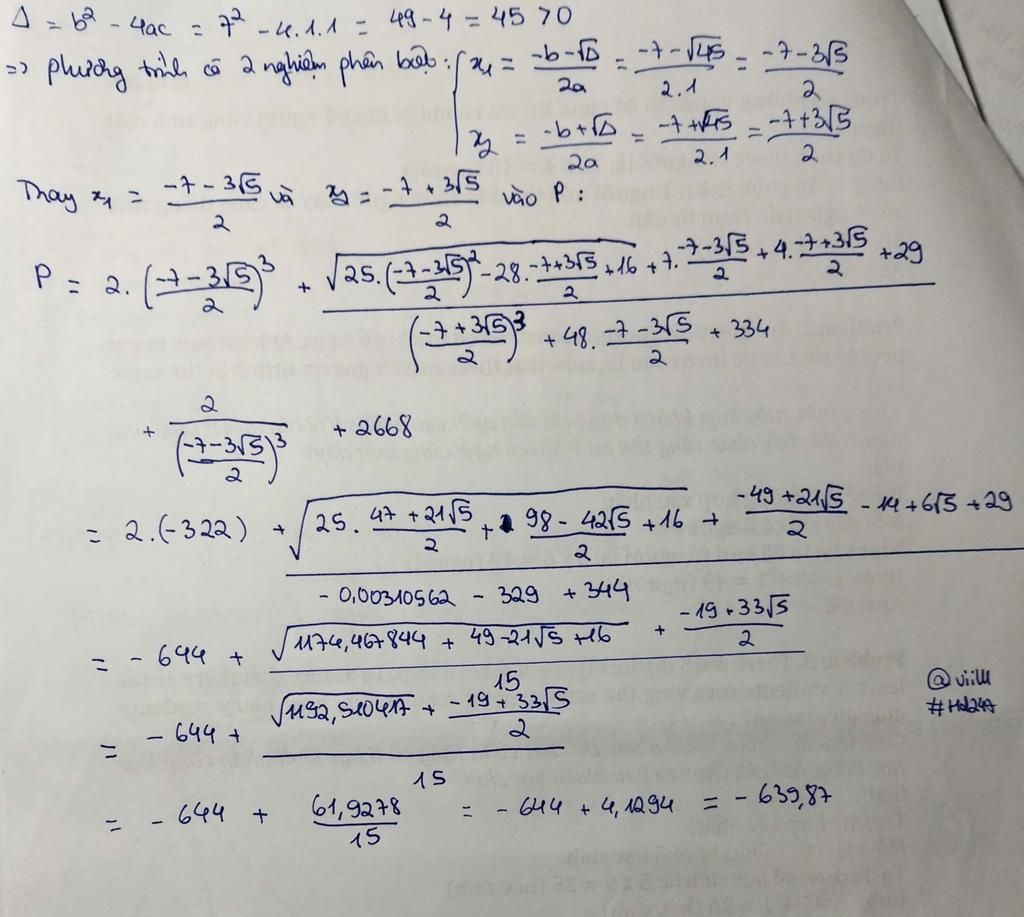 Δ = b² - 4ac = 7² - 4.1.1 = 49 - 4 = 45 > 0
=> phương trình có 2 nghiệm phân biệt: { x₁ = (-b-√Δ)/2a = (-7-√45)/2.1 = (-7-3√5)/2
x₂ = (-b+√Δ)/2a = (-7+√45)/2.1 = (-7+3√5)/2
Thay x₁ = (-7-3√5)/2 và x₂ = (-7+3√5)/2 vào P:
P = 2.((-7-3√5)/2)³ + (√(25.((-7-3√5)/2)² - 28.(-7+3√5)/2 + 16) + 7.(-7-3√5)/2 + 4.(-7+3√5)/2 + 29)/(((-7+3√5)/2)³ + 48.(-7-3√5)/2 + 334)
+ 2/((-7-3√5)/2)³ + 2668
= 2.(-322) + (√(25.(47+21√5)/2 + (98-42√5)/2 + 16) + (-49+21√5)/2 - 14 + 6√5 + 29)/(-0,00310562 - 329 + 344)
= -644 + (√(1174,467844 + 49-21√5 + 16) + (-19+33√5)/2)/15
= -644 + (√1192,510417 + (-19+33√5)/2)/15
= -644 + 61,9278/15 = -644 + 4,1294 = -639,87